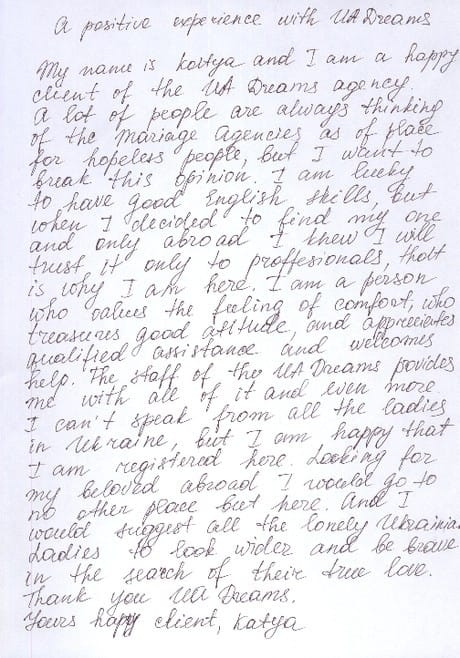 A positive experience with UADreams
My name is Katya and I am a happy
client of the UA Dreams agency.
A lot of people are always thinking
of the mariage agencies as of place
for hopeless people, but I want to
break this opinion. I am lucky
to have good English skills, but
when I decided to find my one
and only abroad I knew I will
trust it only to proffesionals, that
is why I am here. I am a person
who values the feeling of comfort, who
treasures good attitude, and appreciates
qualified assistance and welcomes
help. The staff of the UA Dreams povides
me with all of it and even more.
I can't speak from all the ladies
in Ukraine, but I am happy that
I am registered here. Looking for
my beloved abroad I would go to
no other place but here. And I
would suggest all the lonely Ukrainia
Ladies to look wider and be brave
in the search of their true love.
Thank you UA Dreams.
Yours happy client, Katya